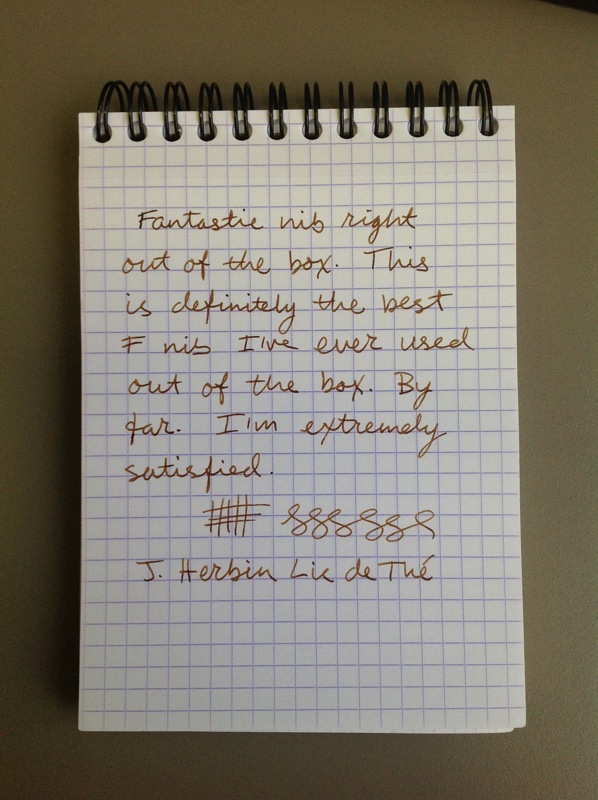 Fantastic nib right
out of the box. This
is definitely the best
F nib I've ever used
out of the box. By
far. I'm extremely
satisfied.
J. Herbin Lie de Thé